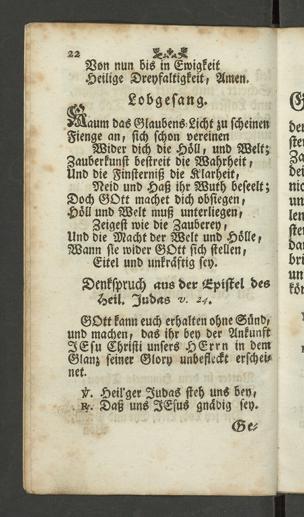 22
Von nun bis in Ewigkeit
Heilige Dreyfaltigkeit, Amen.
Lobgesang.
Kaum das Glaubens-Licht zu scheinen
Fienge an, sich schon vereinen
Wider dich die Höll, und Welt;
Zauberkunst bestreit die Wahrheit,
Und die Finsterniß die Klarheit,
Neid und Haß ihr Wuth beseelt;
Doch GOtt machet dich obsiegen,
Höll und Welt muß unterliegen,
Zeigest wie die Zauberey,
Und die Macht der Welt und Hölle,
Wann sie wider GOtt sich stellen,
Eitel und unkräftig sey.
Denkspruch aus der Epistel des
Heil. Judas v. 24.
GOtt kann euch erhalten ohne Sünd,
und machen, das ihr bey der Ankunft
JEsu Christi unsers HErrn in dem
Glanz seiner Glory unbefleckt erschei-
net.
℣. Heil'ger Judas steh uns bey,
℟. Daß uns JEsus gnädig sey.
Ge-